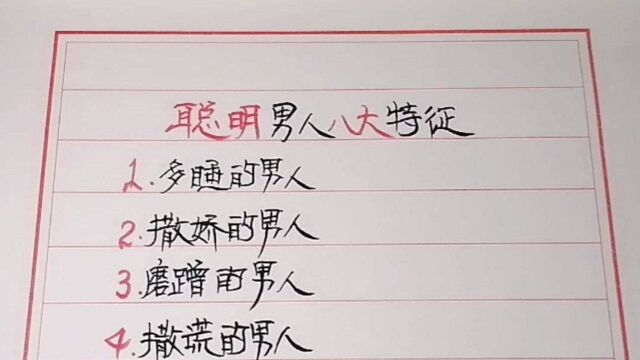 聪明男人八大特征
1.多睡的男人
2.撒娇的男人
3.磨蹭的男人
4.撒谎的男人